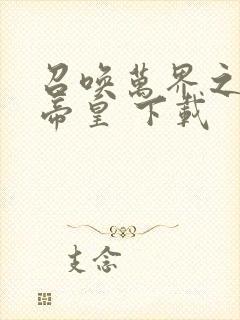 召喚萬界之
帝皇 下載
支念